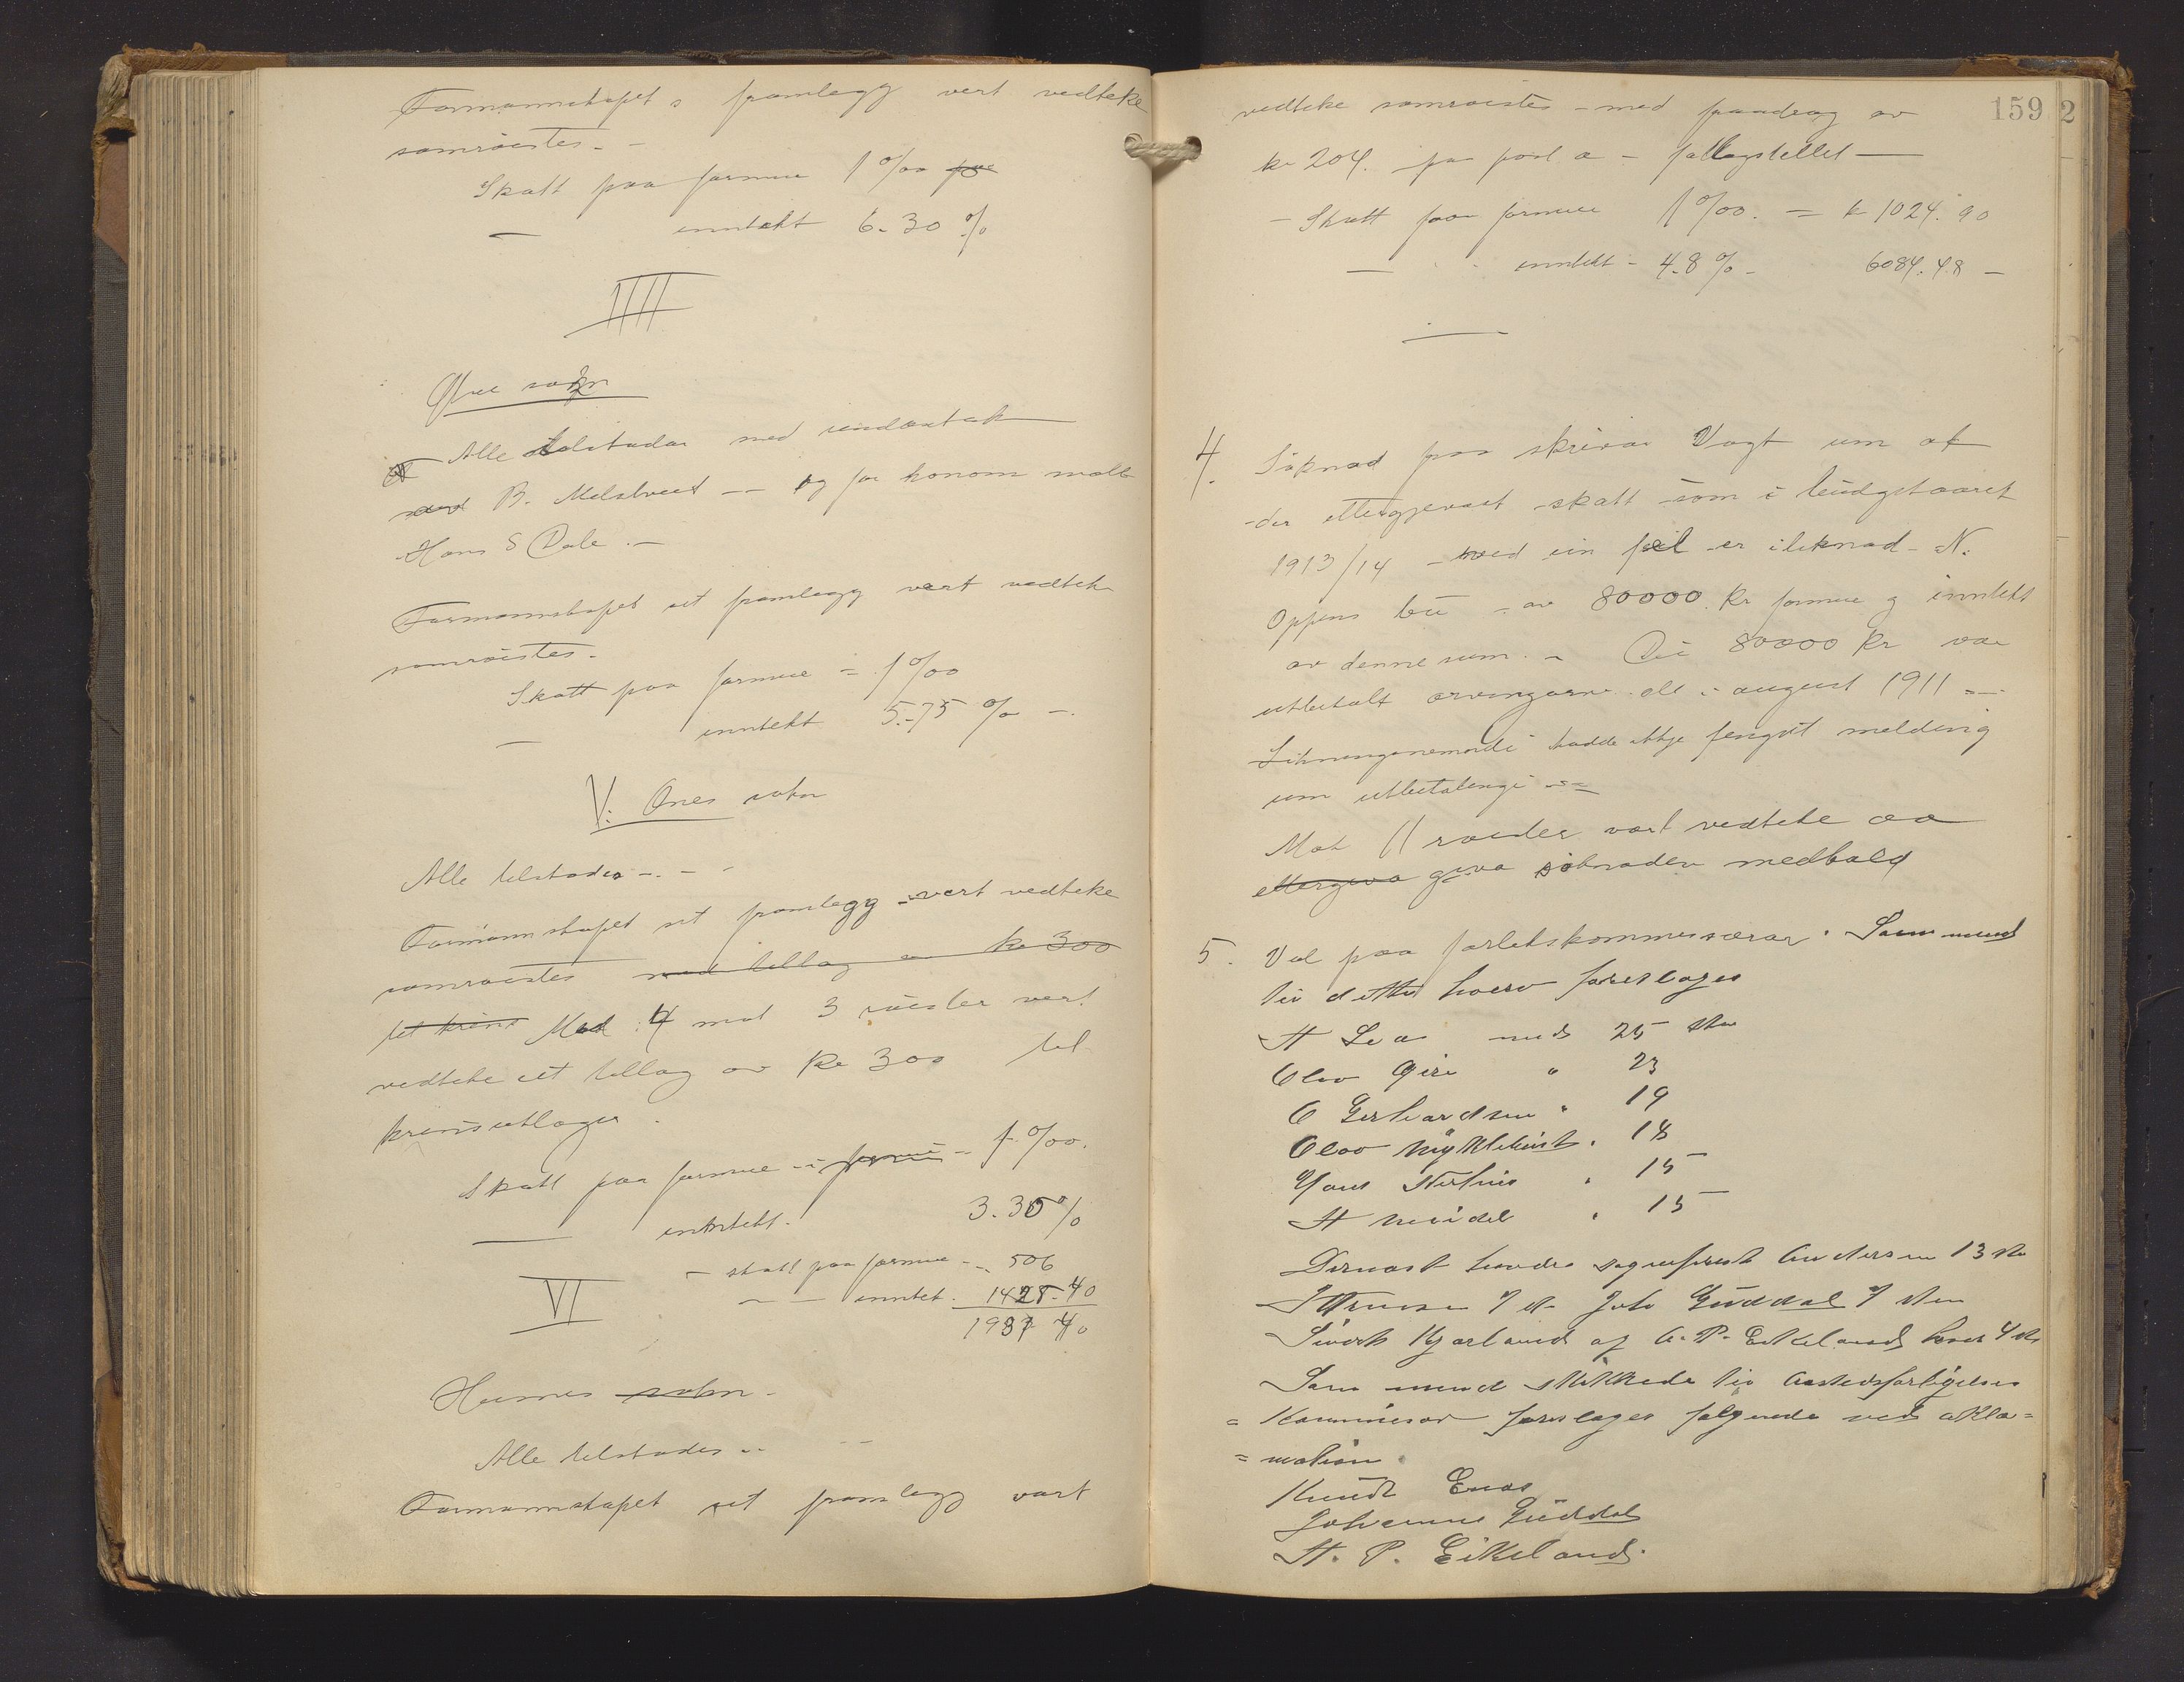 Formannskapet s framlegg vert vedteke
samröistes. -
Skatt paa formue 1 0/00 paa
— inntekt 6.30 %
IIII
Övre sokn
Alle tilstadar med undantak
av B. Mælstveit -- og for honom møtte
Hans S Dale. -
Formannskapet sit framlegg vert vedteke
samröistes. -
Skatt paa formue = 1 0/00
— inntekt 5.75 % -
V. Ones sokn
Alle tilstades - - -
Formannskapet sit framlegg vert vedteke
samröistes med tillag av kr 300
til krins Med 4 mot 3 röister vert
vedteke eit tillag av kr 300 til
krinsutlagur.
Skatt paa formue - i formue - 1 0/00.
— inntekt. 3.30 %
- skatt paa formue - - 506
- - inntekt. 1425.40
1931 40
VI
Husnes sokn -
Alle tilstades - -
Formannskapet sit framlegg vart
159 2
vedteke samröistes - med fraadrag av
kr 204. paa post a - fattigstellet —
- Skatt paa formue 1 0/00. = kr 1024.90
— inntekt - 4.8 % - 6084.48 -
4. Söknad fraa skrivar Vogt um at
der ettergjevast skatt som i budgetaaret
1913/14 ved ein feil er iliknad N.
Oppens bu - av 80000 kr formue og inntekt
av denne sum. - Dei 80000 kr var
utbetalt arvingarne alt i august 1911 --
Likningsnemndi hadde ikkje fengit melding
um utbetalingi --
Mot 11 röister vart vedteke aa
ettergiva giva söknaden medhald
5. Val paa forlikskommissærar. Som mend
til dette hverv foreslages
H Lea med 25 st
Olav Gire " 23
O Gerhardsen " 19
Olav Myklebust " 18
Hans " 15
H Neidel " 15
Dernæst havde Andersen 13 st
7 st Joh Guddal 7 stem
Sivert Kjærland og A. P. Eikeland hver 4 st
Som mend skikkede til
= Kommisær foreslages fölgende ved akla=
= mation
Knudt Enæs
Johannes Guddal
H. P. Eikeland.